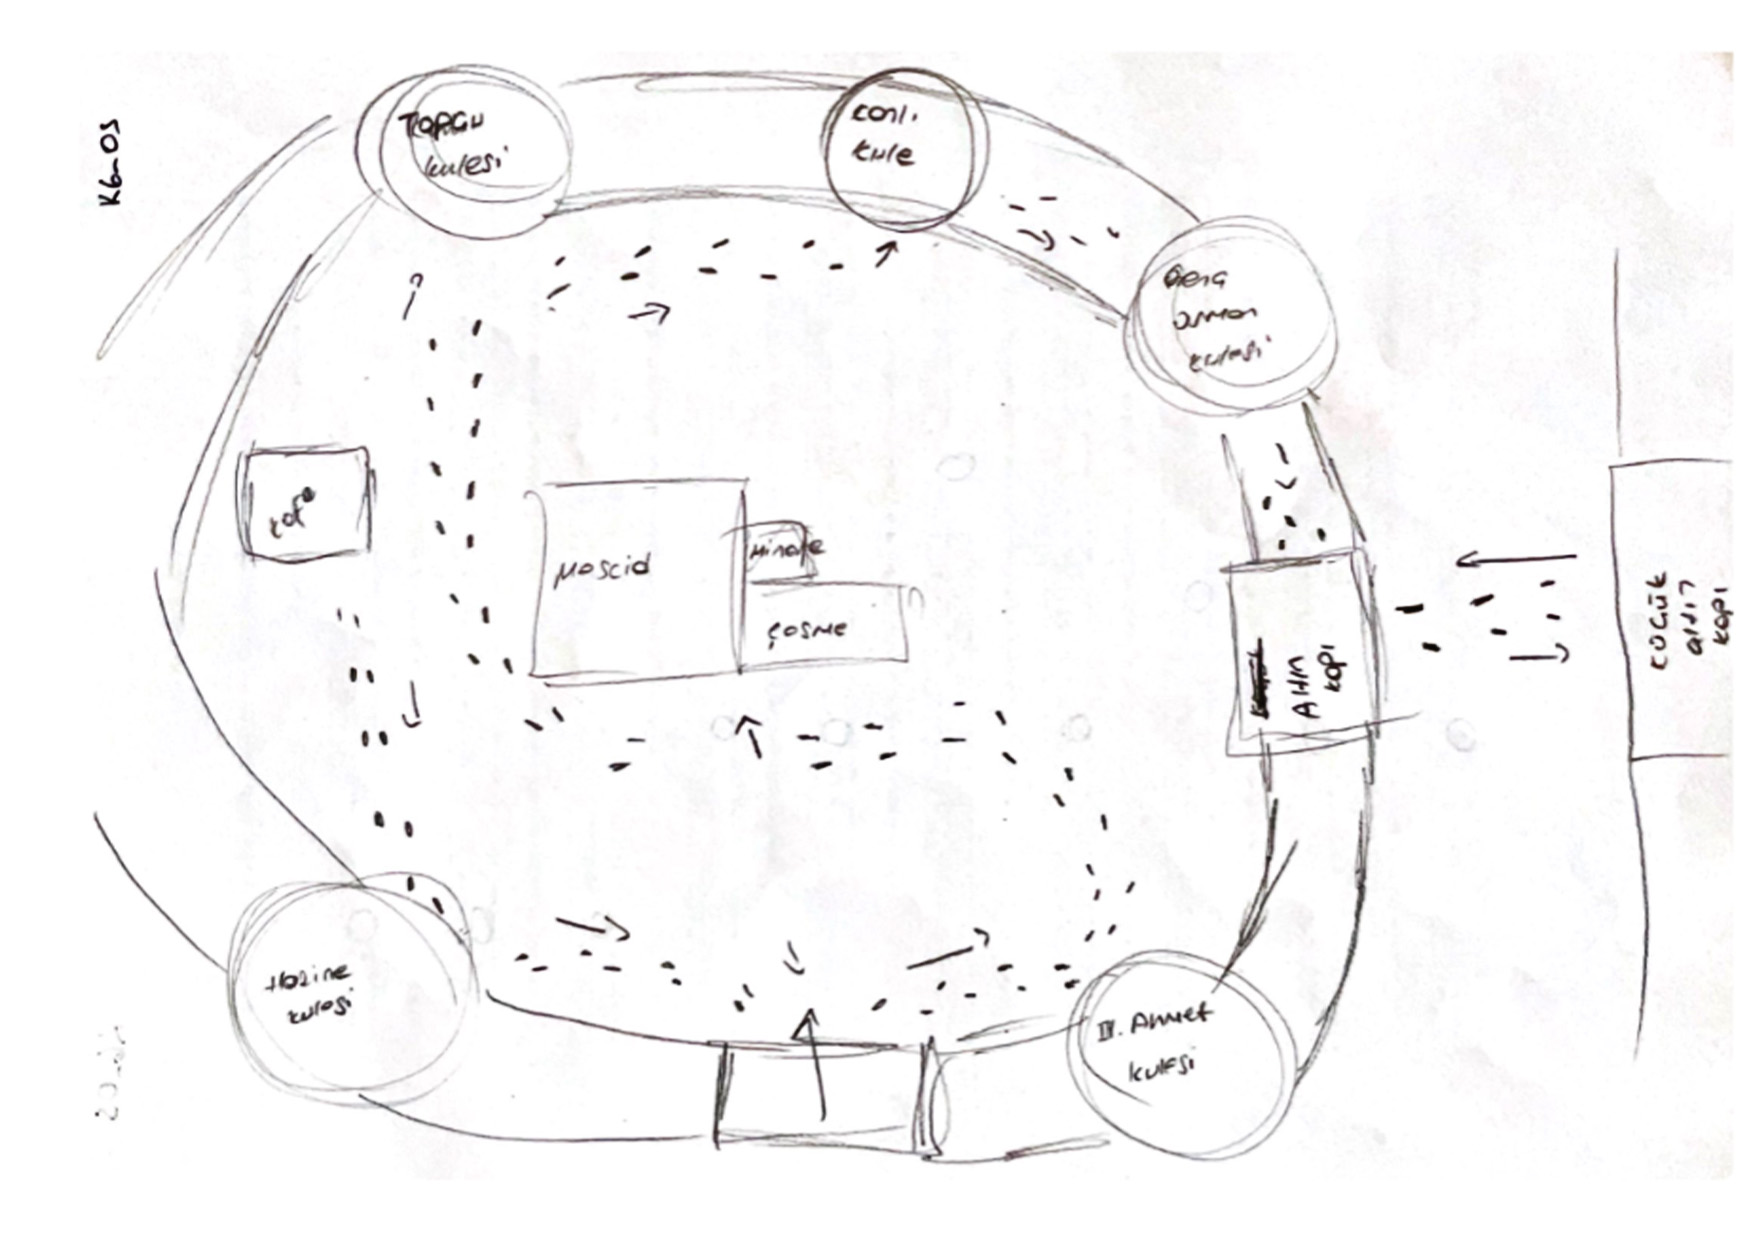 K6-03
TOPÇU
kulesi
Kanlı
Kule
Genç
osman
kulesi
cafe
Mascid
Minare
ÇOSME
AHM
KAPI
KÜÇÜK
altın
kapı
Hazine
kulesi
III. Ahmet
kulesi